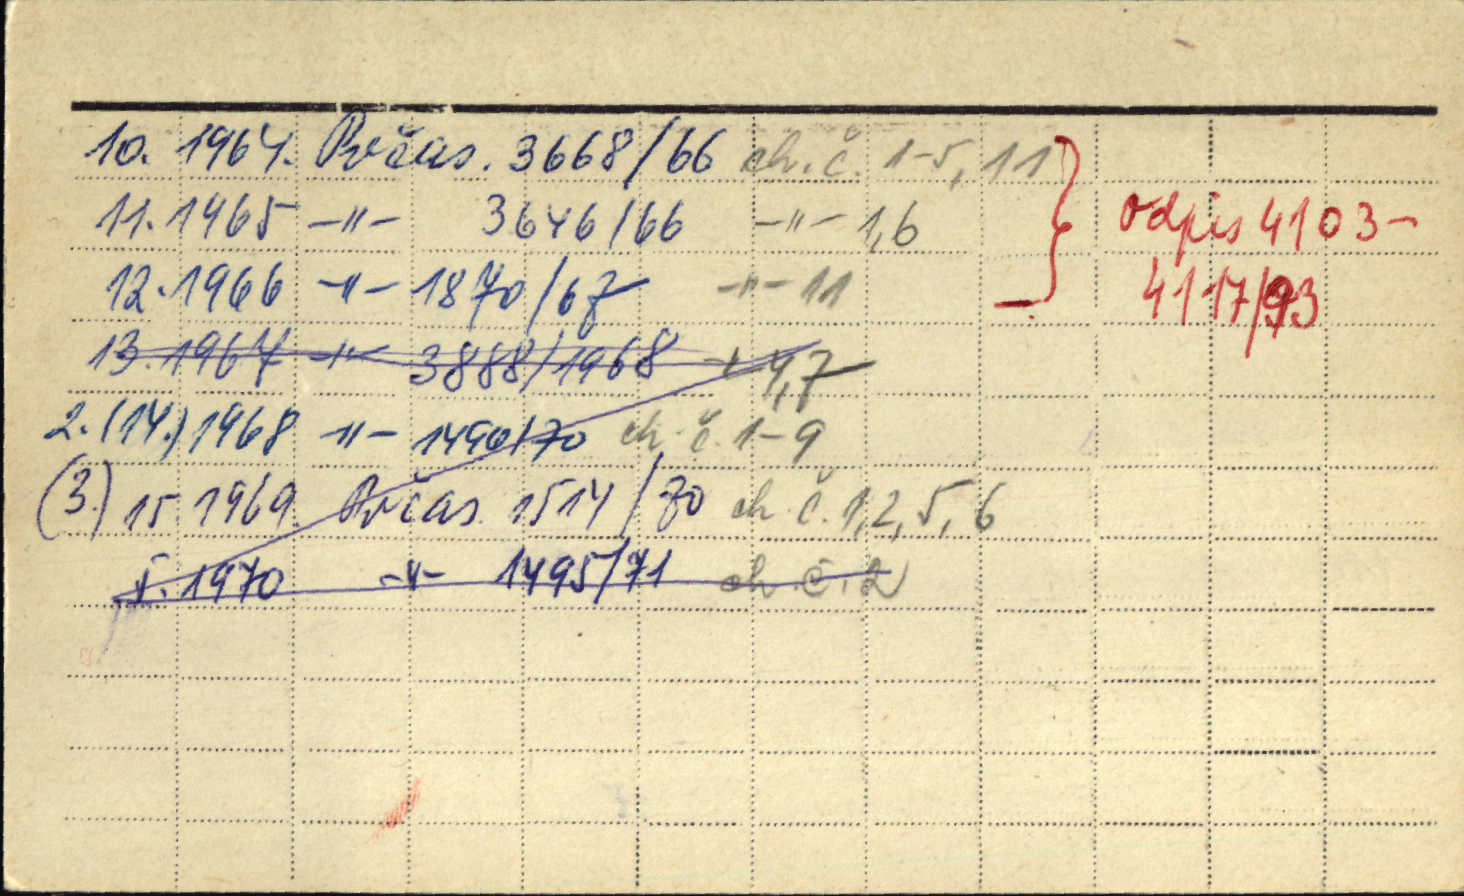 10. 1964. Pr čas. 3668/66 ch. č. 1-5, 11
11. 1965 -"- 3646/66 -"- 1,6
odpis 4103-
12. 1966 -"- 1870/67 -"- 11
4117/93
13. 1967 -"- 3888/1968 -"- 4,7
2. (14.) 1968 -"- 1490/70 ch. č. 1-9
(3.) 15 1969 Pr čas. 1514/70 ch. č. 1,2,5,6
1970 -"- 1495/71 ch. č. 2